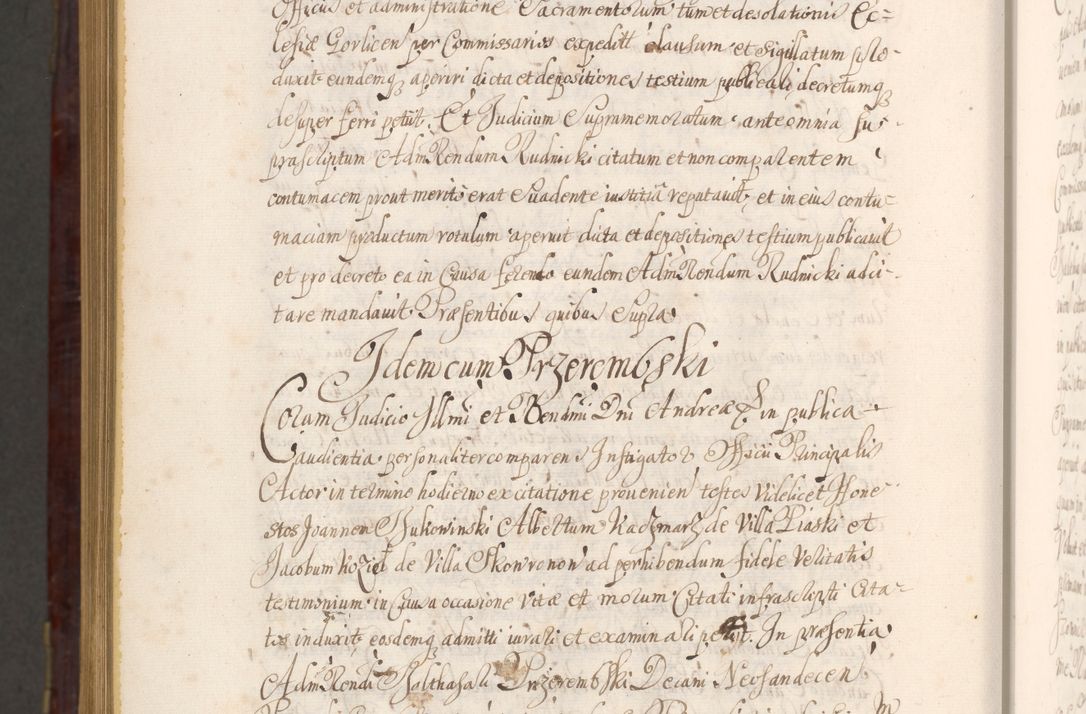 Officii et administratione Sacramentorum tum et desolationis Ec-
lesiæ Gorlicen per Commissarios expeditt clausum et sigillatum pro-
duxit eundemq aperiri dicta et depositiones testium publicari decretumq
desuper ferri petiit. Et Judicium Supramemoratum ante omnia su-
prascriptum AdmRendum Rudnicki citatum et non comparentem
contumacem prout merito erat Suadente iustitia reputavit, et in eius contu-
maciam productum rotulum aperuit dicta et depositiones testium publicavit
et pro decreto ea in Causa ferendo eundem AdmRendum Rudnicki adci-
tare mandavit. Præsentibus quibus Supra
Idem cum Przerembski
Coram Judicio Illmi et Rendmi Dni Andreæ in publica
audientia personaliter comparens Instigator Officii Principalis
Actor in termino hodierno ex citatione provenien testes Videlicet Hone
stos Joannem Zukowinski Albertum Kaczmarz de Villa Piaski et
Jacobum Kozieł de Villa Skowronow ad perhibendum fidele Veritatis
testimonium in Causa occasione vitæ et morum Citati infrascripti Cita-
tos induxit eosdemq admitti iurari et examinari petiit. In præsentia
AdmRendi Balthasari Przerembski Decani Neosandecen